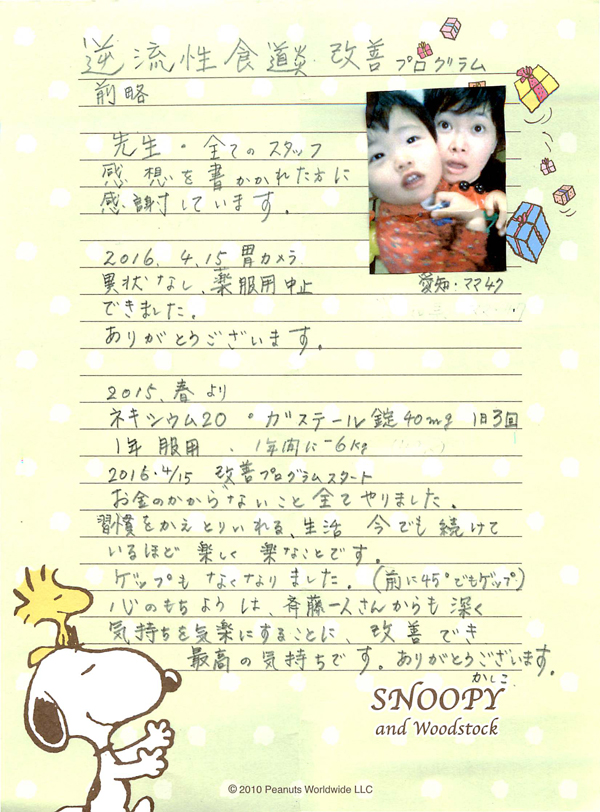 逆流性食道炎 改善プログラム
前略
先生・全てのスタッフ
感想を書かかれた方に
感謝しています。
2016. 4. 15 胃カメラ
異状なし、薬服用中止
できました。
ありがとうございます。
愛知・ママ47
2015、春より
ネキシウム20 。ガステール錠40mg 1日3回
1年 服用 . 1年間に-6kg
2016・4/15 改善プログラムスタート
お金のかからないこと全てやりました。
習慣をかえとりいれる、生活 今でも続けて
いるほど 楽しく 楽なことです。
ゲップも なくなりました。(前に45°でもゲップ)
心のもちようは、斉藤一人さんからも深く
気持ちを気楽にすることに、改善でき
最高の気持ちです。ありがとうございます。
かしこ
SNOOPY
and Woodstock
© 2010 Peanuts Worldwide LLC